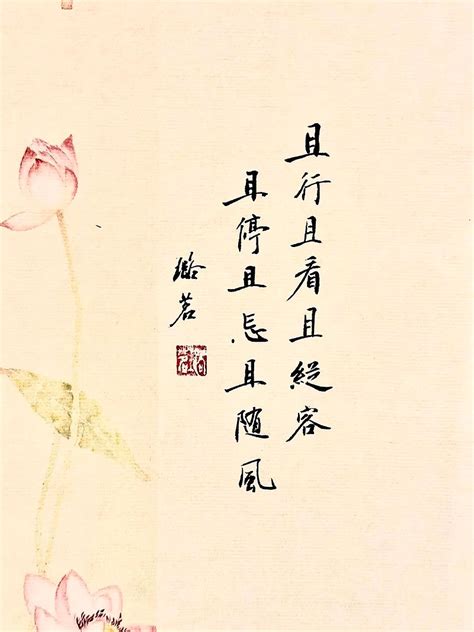 且行且看且縱容
且停且忘且随風
茗